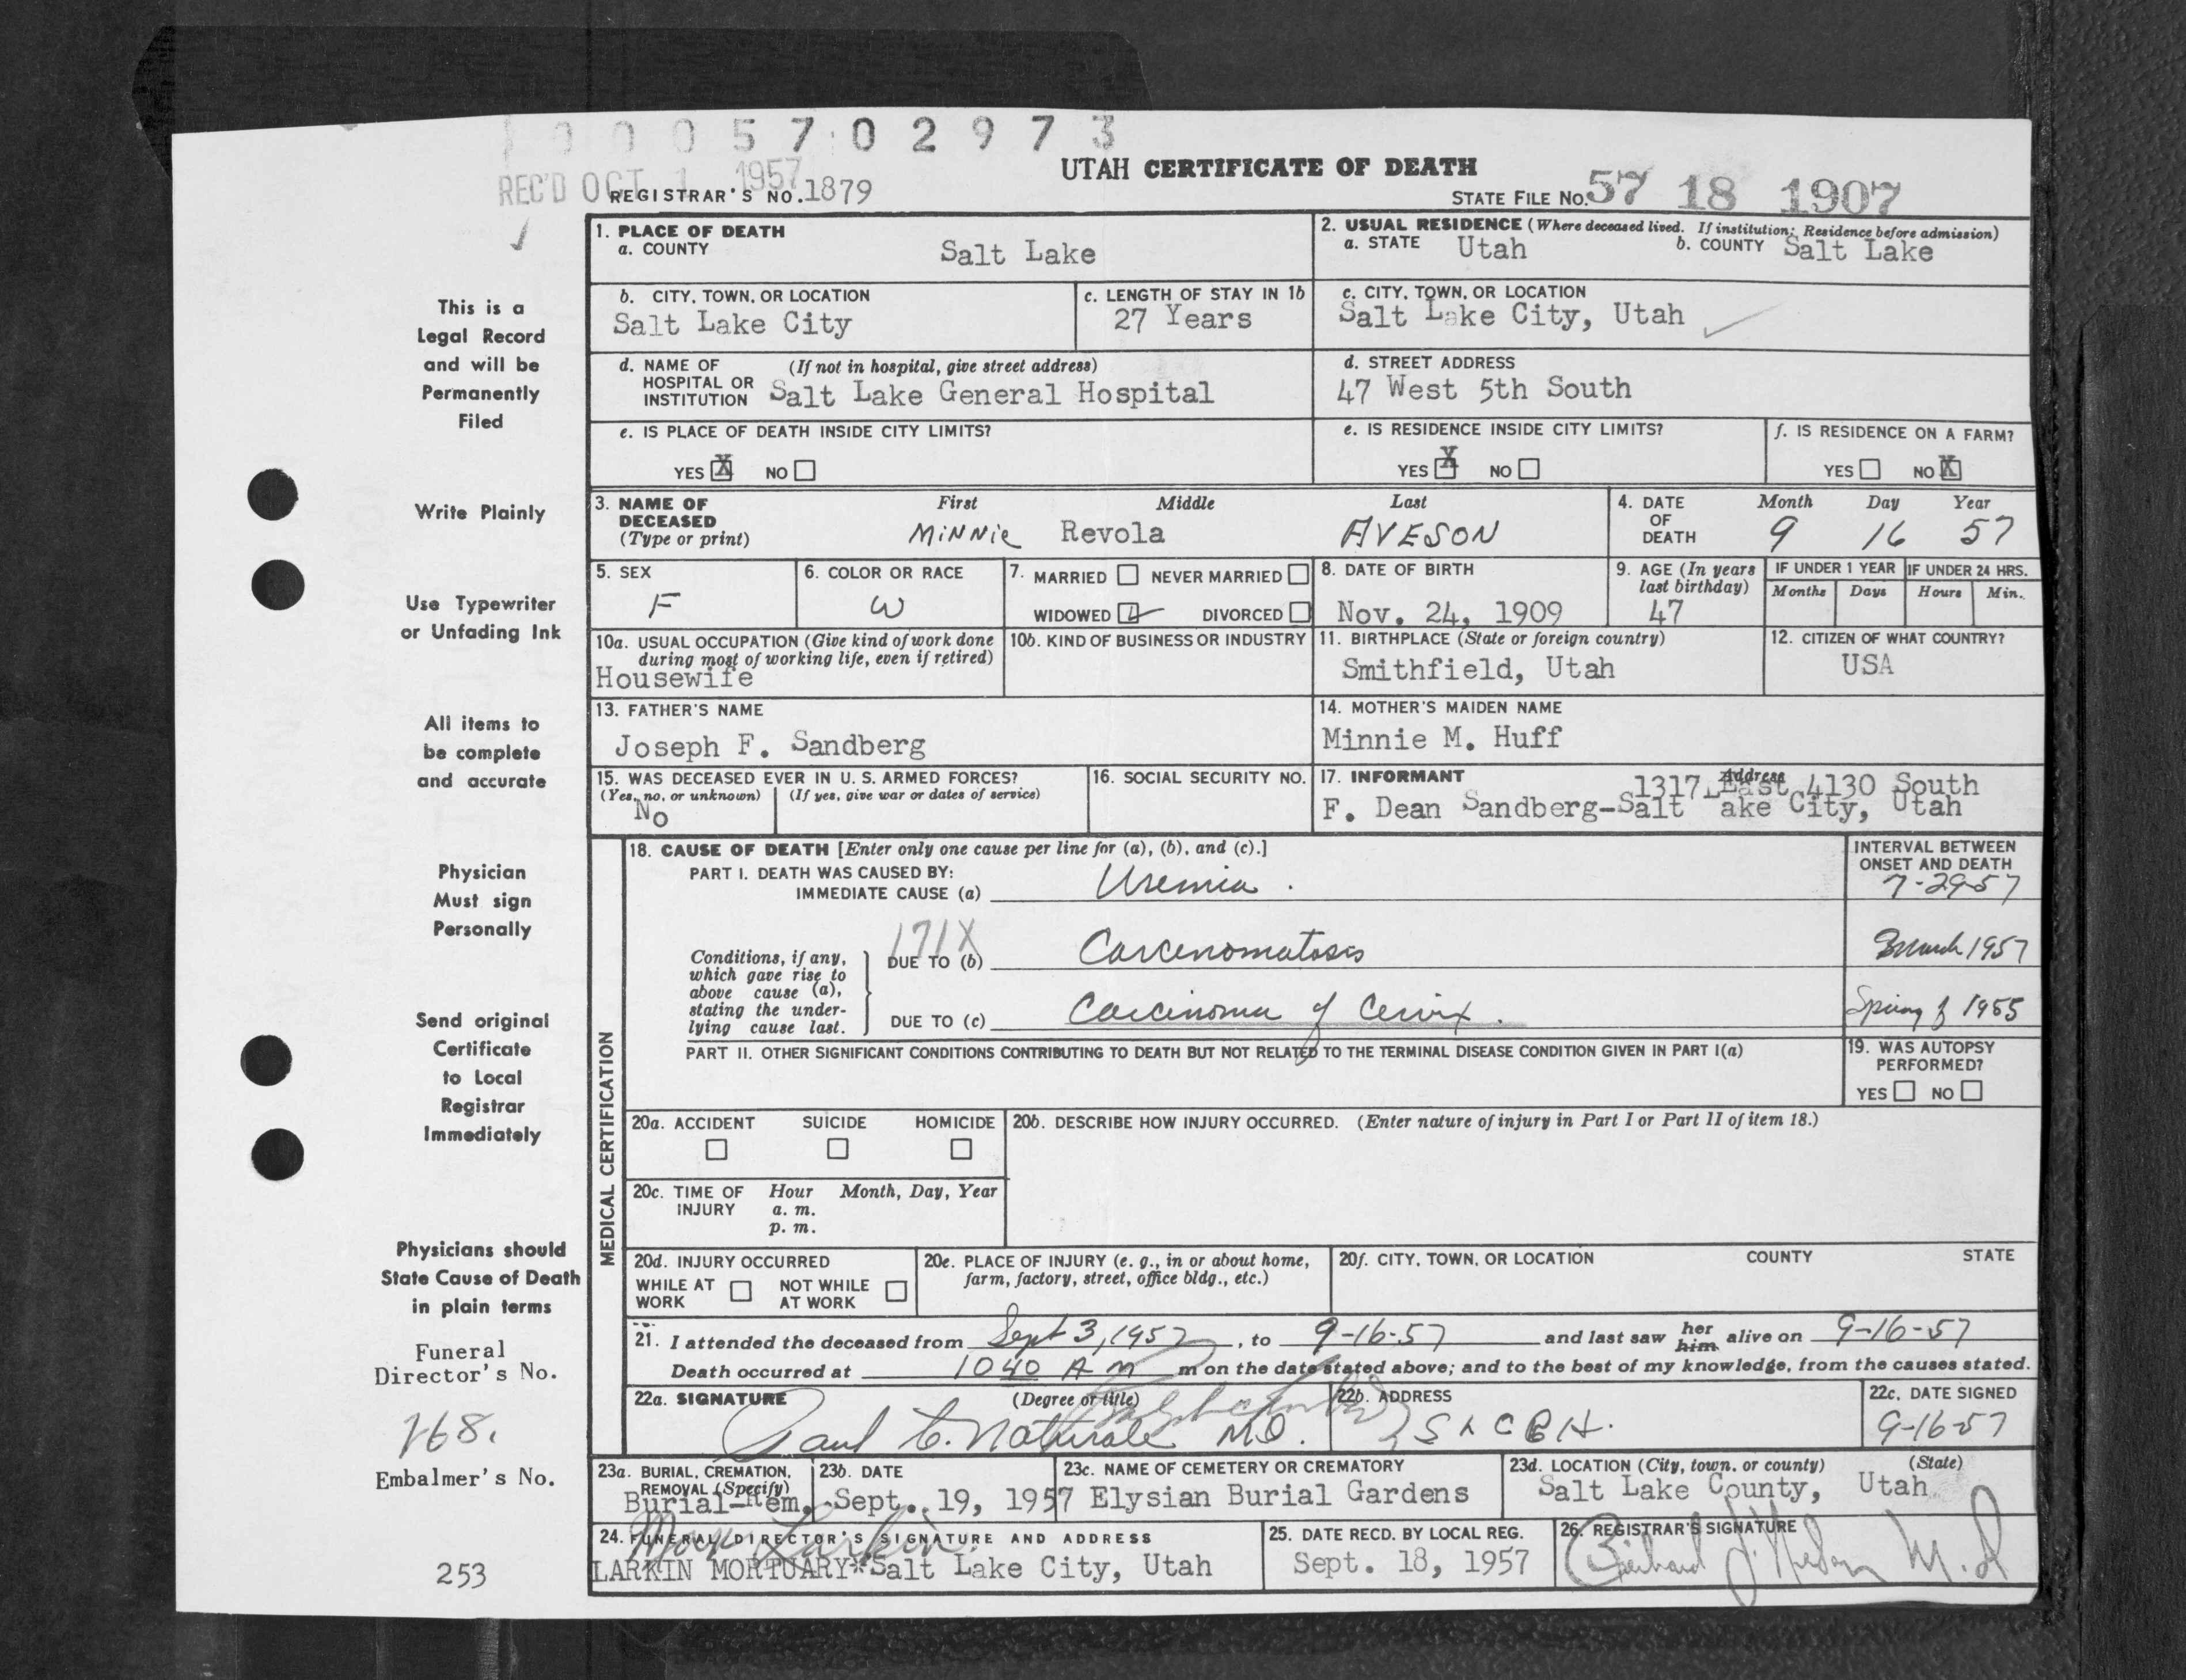 0 0 0 5 7 0 2 9 7 3
REC'D OCT 1 1957
UTAH CERTIFICATE OF DEATH
REGISTRAR'S NO. 1879
STATE FILE NO. 57 18 1907
1. PLACE OF DEATH
a. COUNTY Salt Lake
2. USUAL RESIDENCE (Where deceased lived. If institution: Residence before admission)
a. STATE Utah b. COUNTY Salt Lake
b. CITY, TOWN, OR LOCATION
Salt Lake City
c. LENGTH OF STAY IN 1b
27 Years
c. CITY, TOWN, OR LOCATION
Salt Lake City, Utah
d. NAME OF HOSPITAL OR INSTITUTION (If not in hospital, give street address)
Salt Lake General Hospital
d. STREET ADDRESS
47 West 5th South
e. IS PLACE OF DEATH INSIDE CITY LIMITS?
YES X NO
e. IS RESIDENCE INSIDE CITY LIMITS?
YES X NO
f. IS RESIDENCE ON A FARM?
YES NO X
3. NAME OF DECEASED (Type or print)
First Middle Last
MiNNie Revola AVESON
4. DATE OF DEATH
Month Day Year
9 16 57
5. SEX
F
6. COLOR OR RACE
W
7. MARRIED NEVER MARRIED
WIDOWED DIVORCED
8. DATE OF BIRTH
Nov. 24, 1909
9. AGE (In years last birthday)
47
IF UNDER 1 YEAR
Months Days
IF UNDER 24 HRS.
Hours Min.
10a. USUAL OCCUPATION (Give kind of work done during most of working life, even if retired)
Housewife
10b. KIND OF BUSINESS OR INDUSTRY
11. BIRTHPLACE (State or foreign country)
Smithfield, Utah
12. CITIZEN OF WHAT COUNTRY?
USA
13. FATHER'S NAME
Joseph F. Sandberg
14. MOTHER'S MAIDEN NAME
Minnie M. Huff
15. WAS DECEASED EVER IN U. S. ARMED FORCES?
(Yes, no, or unknown) (If yes, give war or dates of service)
No
16. SOCIAL SECURITY NO.
17. INFORMANT Address
1317 East 4130 South
F. Dean Sandberg-Salt Lake City, Utah
MEDICAL CERTIFICATION
18. CAUSE OF DEATH [Enter only one cause per line for (a), (b), and (c).]
INTERVAL BETWEEN ONSET AND DEATH
PART I. DEATH WAS CAUSED BY:
IMMEDIATE CAUSE (a) Uremia. 7-29-57
171X
Conditions, if any, which gave rise to above cause (a), stating the underlying cause last.
DUE TO (b) Carcenomatosis March 1957
DUE TO (c) Carcinoma of Cervix. Spring of 1955
PART II. OTHER SIGNIFICANT CONDITIONS CONTRIBUTING TO DEATH BUT NOT RELATED TO THE TERMINAL DISEASE CONDITION GIVEN IN PART I(a)
19. WAS AUTOPSY PERFORMED?
YES NO
20a. ACCIDENT SUICIDE HOMICIDE
20b. DESCRIBE HOW INJURY OCCURRED. (Enter nature of injury in Part I or Part II of item 18.)
20c. TIME OF INJURY Hour Month, Day, Year
a. m.
p. m.
20d. INJURY OCCURRED
WHILE AT WORK NOT WHILE AT WORK
20e. PLACE OF INJURY (e. g., in or about home, farm, factory, street, office bldg., etc.)
20f. CITY, TOWN, OR LOCATION COUNTY STATE
21. I attended the deceased from Sept 3, 1957, to 9-16-57 and last saw her him alive on 9-16-57
Death occurred at 1040 A m m on the date stated above; and to the best of my knowledge, from the causes stated.
22a. SIGNATURE (Degree or title)
Paul C. Naturale MD.
22b. ADDRESS
S L C G H.
22c. DATE SIGNED
9-16-57
23a. BURIAL, CREMATION, REMOVAL (Specify)
Burial-Rem.
23b. DATE
Sept. 19, 1957
23c. NAME OF CEMETERY OR CREMATORY
Elysian Burial Gardens
23d. LOCATION (City, town, or county) (State)
Salt Lake County, Utah
24. FUNERAL DIRECTOR'S SIGNATURE AND ADDRESS
Larkin
LARKIN MORTUARY*Salt Lake City, Utah
25. DATE RECD. BY LOCAL REG.
Sept. 18, 1957
26. REGISTRAR'S SIGNATURE
M.D
This is a
Legal Record
and will be
Permanently
Filed
Write Plainly
Use Typewriter
or Unfading Ink
All items to
be complete
and accurate
Physician
Must sign
Personally
Send original
Certificate
to Local
Registrar
Immediately
Physicians should
State Cause of Death
in plain terms
Funeral
Director's No.
768.
Embalmer's No.
253